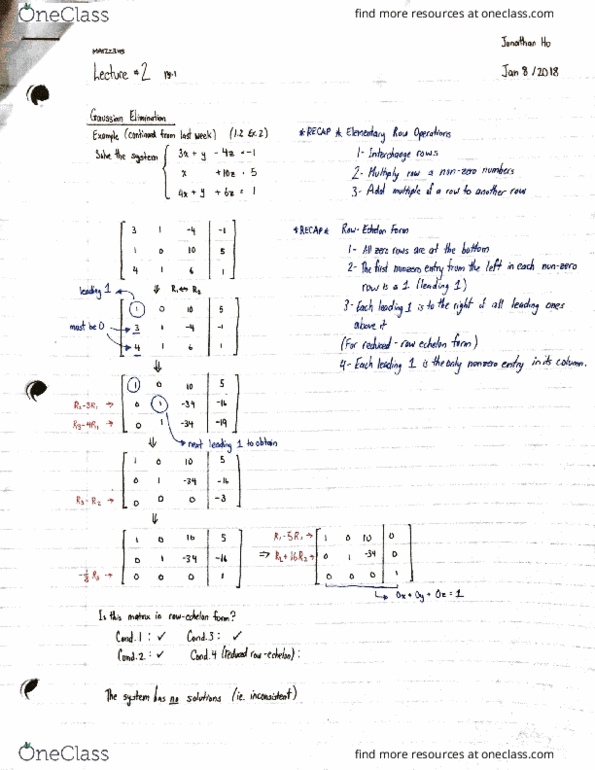 OneClass
find more resources at oneclass.com
Jonathan Ho
Lecture #2
Jan 8/2018
Gaussian Elimination
Example (continued from last week) (1.2 Ex. 2)
Solve the system
3x + y - 4z = -1
x + 10z = 5
4x + y + 6z = 1
*RECAP* Elementary Row Operations
1- Interchange rows
2- Multiply row a non-zero numbers
3- Add multiple of a row to another row
3 1 -4 -1
1 0 10 5
4 1 6 1
⇓ R₁ ↔ R₂
leading 1
1 0 10 5
must be 0
3 1 -4 -1
4 1 6 1
*RECAP* Row-Echelon Form
1- All zero rows are at the bottom
2- The first nonzero entry from the left in each non-zero
row is a 1 (leading 1)
3- Each leading 1 is to the right of all leading ones
above it
(For reduced-row echelon form)
4- Each leading 1 is the only nonzero entry in its column.
⇓
1 0 10 5
R₂-3R₁ → 0 1 -34 -16
R₃-4R₁ → 0 1 -34 -19
⇓ next leading 1 to obtain
1 0 10 5
0 1 -34 -16
R₃-R₂ → 0 0 0 -3
⇓
1 0 10 5
0 1 -34 -16
R₃ → 0 0 0 1
⇒
1 0 10 0
0 1 -34 0
0 0 0 1
0x + 0y + 0z = 1
Is this matrix in row-echelon form?
Cond. 1: ✓ Cond. 3: ✓
Cond. 2: ✓ Cond. 4 (reduced row-echelon):
The system has no solutions (ie. inconsistent)
OneClass
find more resources at oneclass.com